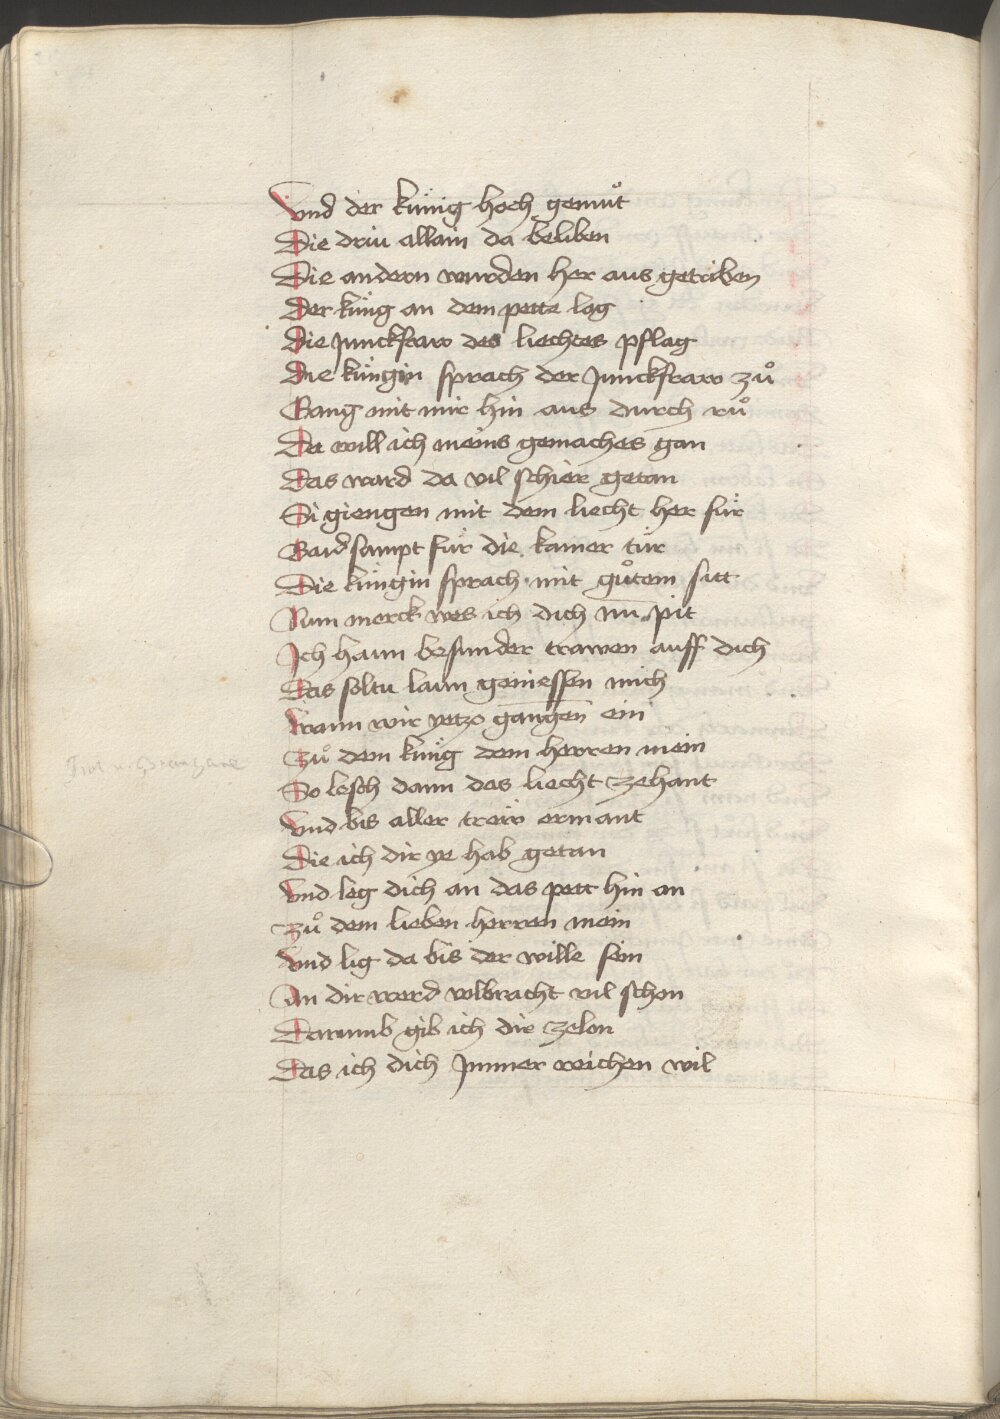 Vnd der künig hoch gemuͦt
Die driu allain da beliben
Die andern wurden her aus getriben
Der küng an dem pette lag
Die Junckfraw des liechtes pflag
Die küngin sprach der Junckfraw zuͦ
Gang mit mir hin aus durch ruͦ
Da will ich meins gemaches gan
Das ward da vil schier getan
Si giengen mit dem liecht her für
Baid sampt für die kamer tür
Die küngin sprach mit guͦtem sitt
Nun merck wes ich dich nu pit
Ich haun besunder trawen auff dich
Das soltu laun geniessen mich
Wann wir yetzo gangen ein
Zuͦ dem küng dem herren mein
So lesch dann das liecht zehant
Vnd bis aller trew ermant
Die ich dir ye hab getan
Vnd leg dich an das pett hin an
Zuͦ dem lieben herren mein
Vnd lig da bis der wille sein
An dir werd volbracht vil schon
Darumb gib ich dir zelon
Das ich dich Jmmer reichen wil